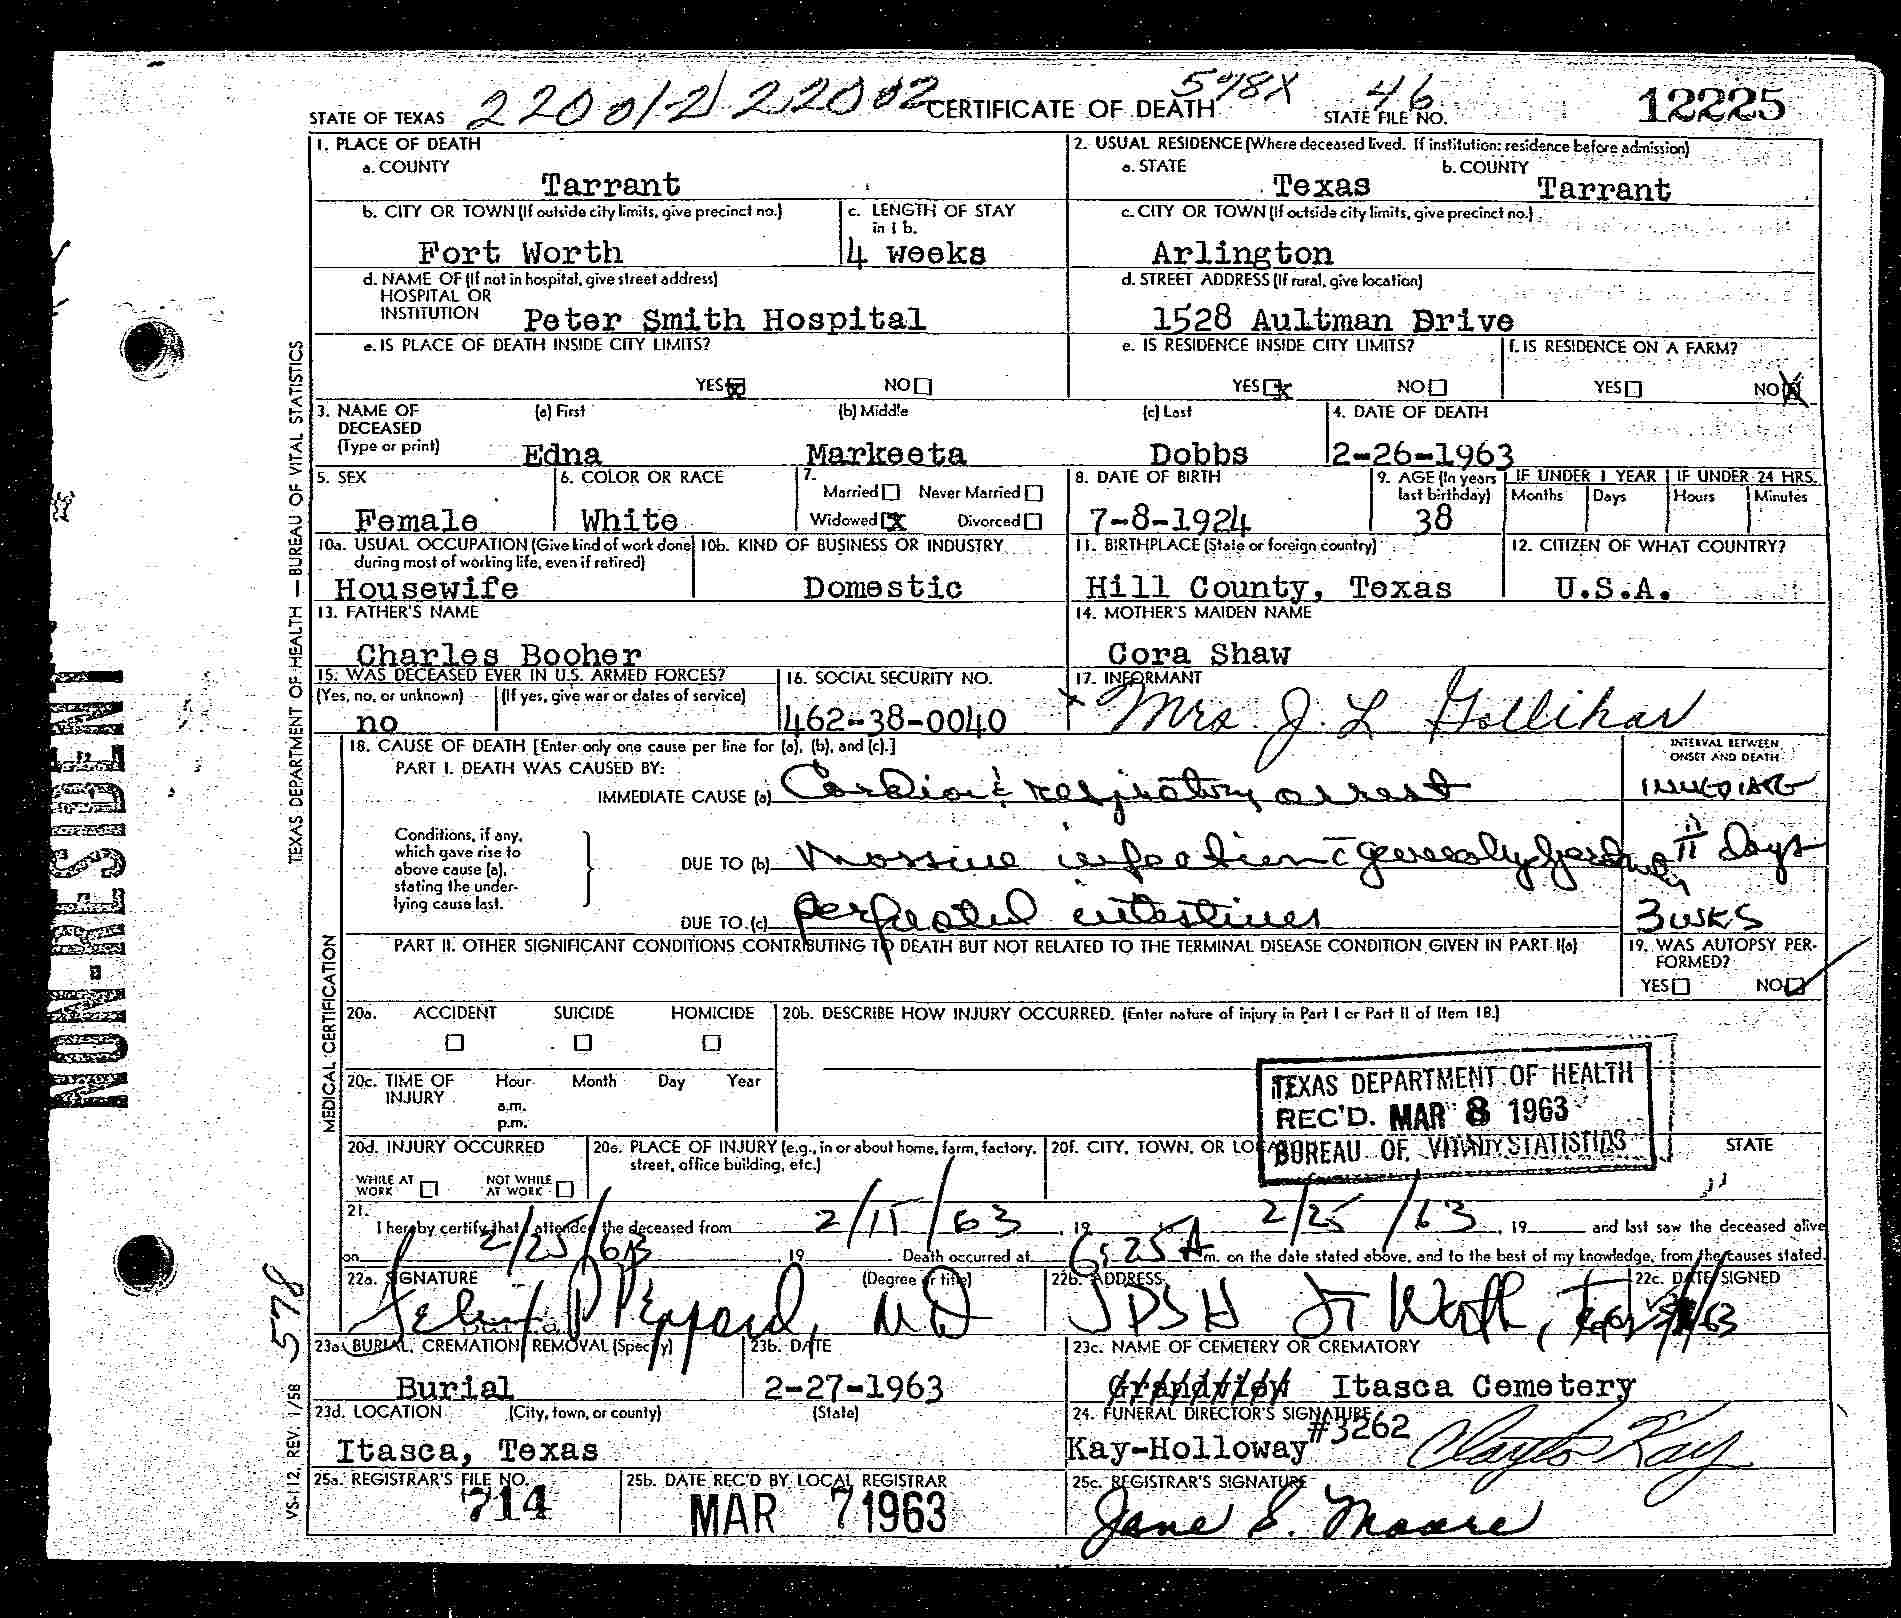 STATE OF TEXAS 220012 22002 CERTIFICATE OF DEATH 578X STATE FILE NO. 46 12225
1. PLACE OF DEATH
a. COUNTY
Tarrant
2. USUAL RESIDENCE (Where deceased lived. If institution: residence before admission)
a. STATE
Texas
b. COUNTY
Tarrant
b. CITY OR TOWN (If outside city limits, give precinct no.)
Fort Worth
c. LENGTH OF STAY
in 1 b.
4 weeks
c. CITY OR TOWN (If outside city limits, give precinct no.)
Arlington
d. NAME OF (If not in hospital, give street address)
HOSPITAL OR
INSTITUTION Peter Smith Hospital
d. STREET ADDRESS (If rural, give location)
1528 Aultman Drive
e. IS PLACE OF DEATH INSIDE CITY LIMITS?
YES NO
e. IS RESIDENCE INSIDE CITY LIMITS?
YES NO
f. IS RESIDENCE ON A FARM?
YES NO
3. NAME OF
DECEASED
(Type or print)
(a) First
Edna
(b) Middle
Markeeta
(c) Last
Dobbs
4. DATE OF DEATH
2-26-1963
5. SEX
Female
6. COLOR OR RACE
White
7.
Married Never Married
Widowed Divorced
8. DATE OF BIRTH
7-8-1924
9. AGE (In years
last birthday)
38
IF UNDER 1 YEAR
Months Days
IF UNDER 24 HRS.
Hours Minutes
10a. USUAL OCCUPATION (Give kind of work done
during most of working life, even if retired)
Housewife
10b. KIND OF BUSINESS OR INDUSTRY
Domestic
11. BIRTHPLACE (State or foreign country)
Hill County, Texas
12. CITIZEN OF WHAT COUNTRY?
U.S.A.
13. FATHER'S NAME
Charles Booher
14. MOTHER'S MAIDEN NAME
Cora Shaw
15. WAS DECEASED EVER IN U.S. ARMED FORCES?
(Yes, no, or unknown) (If yes, give war or dates of service)
no
16. SOCIAL SECURITY NO.
462-38-0040
17. INFORMANT
x Mrs. J. L Gollihar
18. CAUSE OF DEATH [Enter only one cause per line for (a), (b), and (c).]
PART I. DEATH WAS CAUSED BY:
IMMEDIATE CAUSE (a) Cardiac & respiratory arrest
INTERVAL BETWEEN
ONSET AND DEATH
IMMEDIATE
Conditions, if any,
which gave rise to
above cause (a),
stating the under-
lying cause last.
DUE TO (b) Massive infection
11 days
DUE TO (c) perforated intestines
3 WKS
PART II. OTHER SIGNIFICANT CONDITIONS CONTRIBUTING TO DEATH BUT NOT RELATED TO THE TERMINAL DISEASE CONDITION GIVEN IN PART I(a)
19. WAS AUTOPSY PER-
FORMED?
YES NO
20a. ACCIDENT SUICIDE HOMICIDE
20b. DESCRIBE HOW INJURY OCCURRED. (Enter nature of injury in Part I or Part II of Item 18.)
20c. TIME OF
INJURY
Hour Month Day Year
a.m.
p.m.
TEXAS DEPARTMENT OF HEALTH
REC'D. MAR 8 1963
BUREAU OF VITAL STATISTICS
20d. INJURY OCCURRED
WHILE AT
WORK
NOT WHILE
AT WORK
20e. PLACE OF INJURY (e.g., in or about home, farm, factory,
street, office building, etc.)
20f. CITY, TOWN, OR STATE
21.
I hereby certify that I attended the deceased from 2/15/63, 19 to 2/25/63, 19 and last saw the deceased alive
on 2/25/63, 19 Death occurred at 6:25 A m. on the date stated above, and to the best of my knowledge, from the causes stated.
22a. SIGNATURE (Degree or title)
Peppard, MD
22b. ADDRESS
JPSH Ft Worth,
22c. DATE SIGNED
23a. BURIAL, CREMATION, REMOVAL (Specify)
Burial
23b. DATE
2-27-1963
23c. NAME OF CEMETERY OR CREMATORY
Grandview Itasca Cemetery
23d. LOCATION (City, town, or county) (State)
Itasca, Texas
24. FUNERAL DIRECTOR'S SIGNATURE
Kay-Holloway #3262 Clayton Kay
25a. REGISTRAR'S FILE NO.
714
25b. DATE REC'D BY LOCAL REGISTRAR
MAR 7 1963
25c. REGISTRAR'S SIGNATURE
Jane S. Moore
TEXAS DEPARTMENT OF HEALTH — BUREAU OF VITAL STATISTICS
MEDICAL CERTIFICATION
NON-RESIDENT
578
VS-112, REV. 1/58